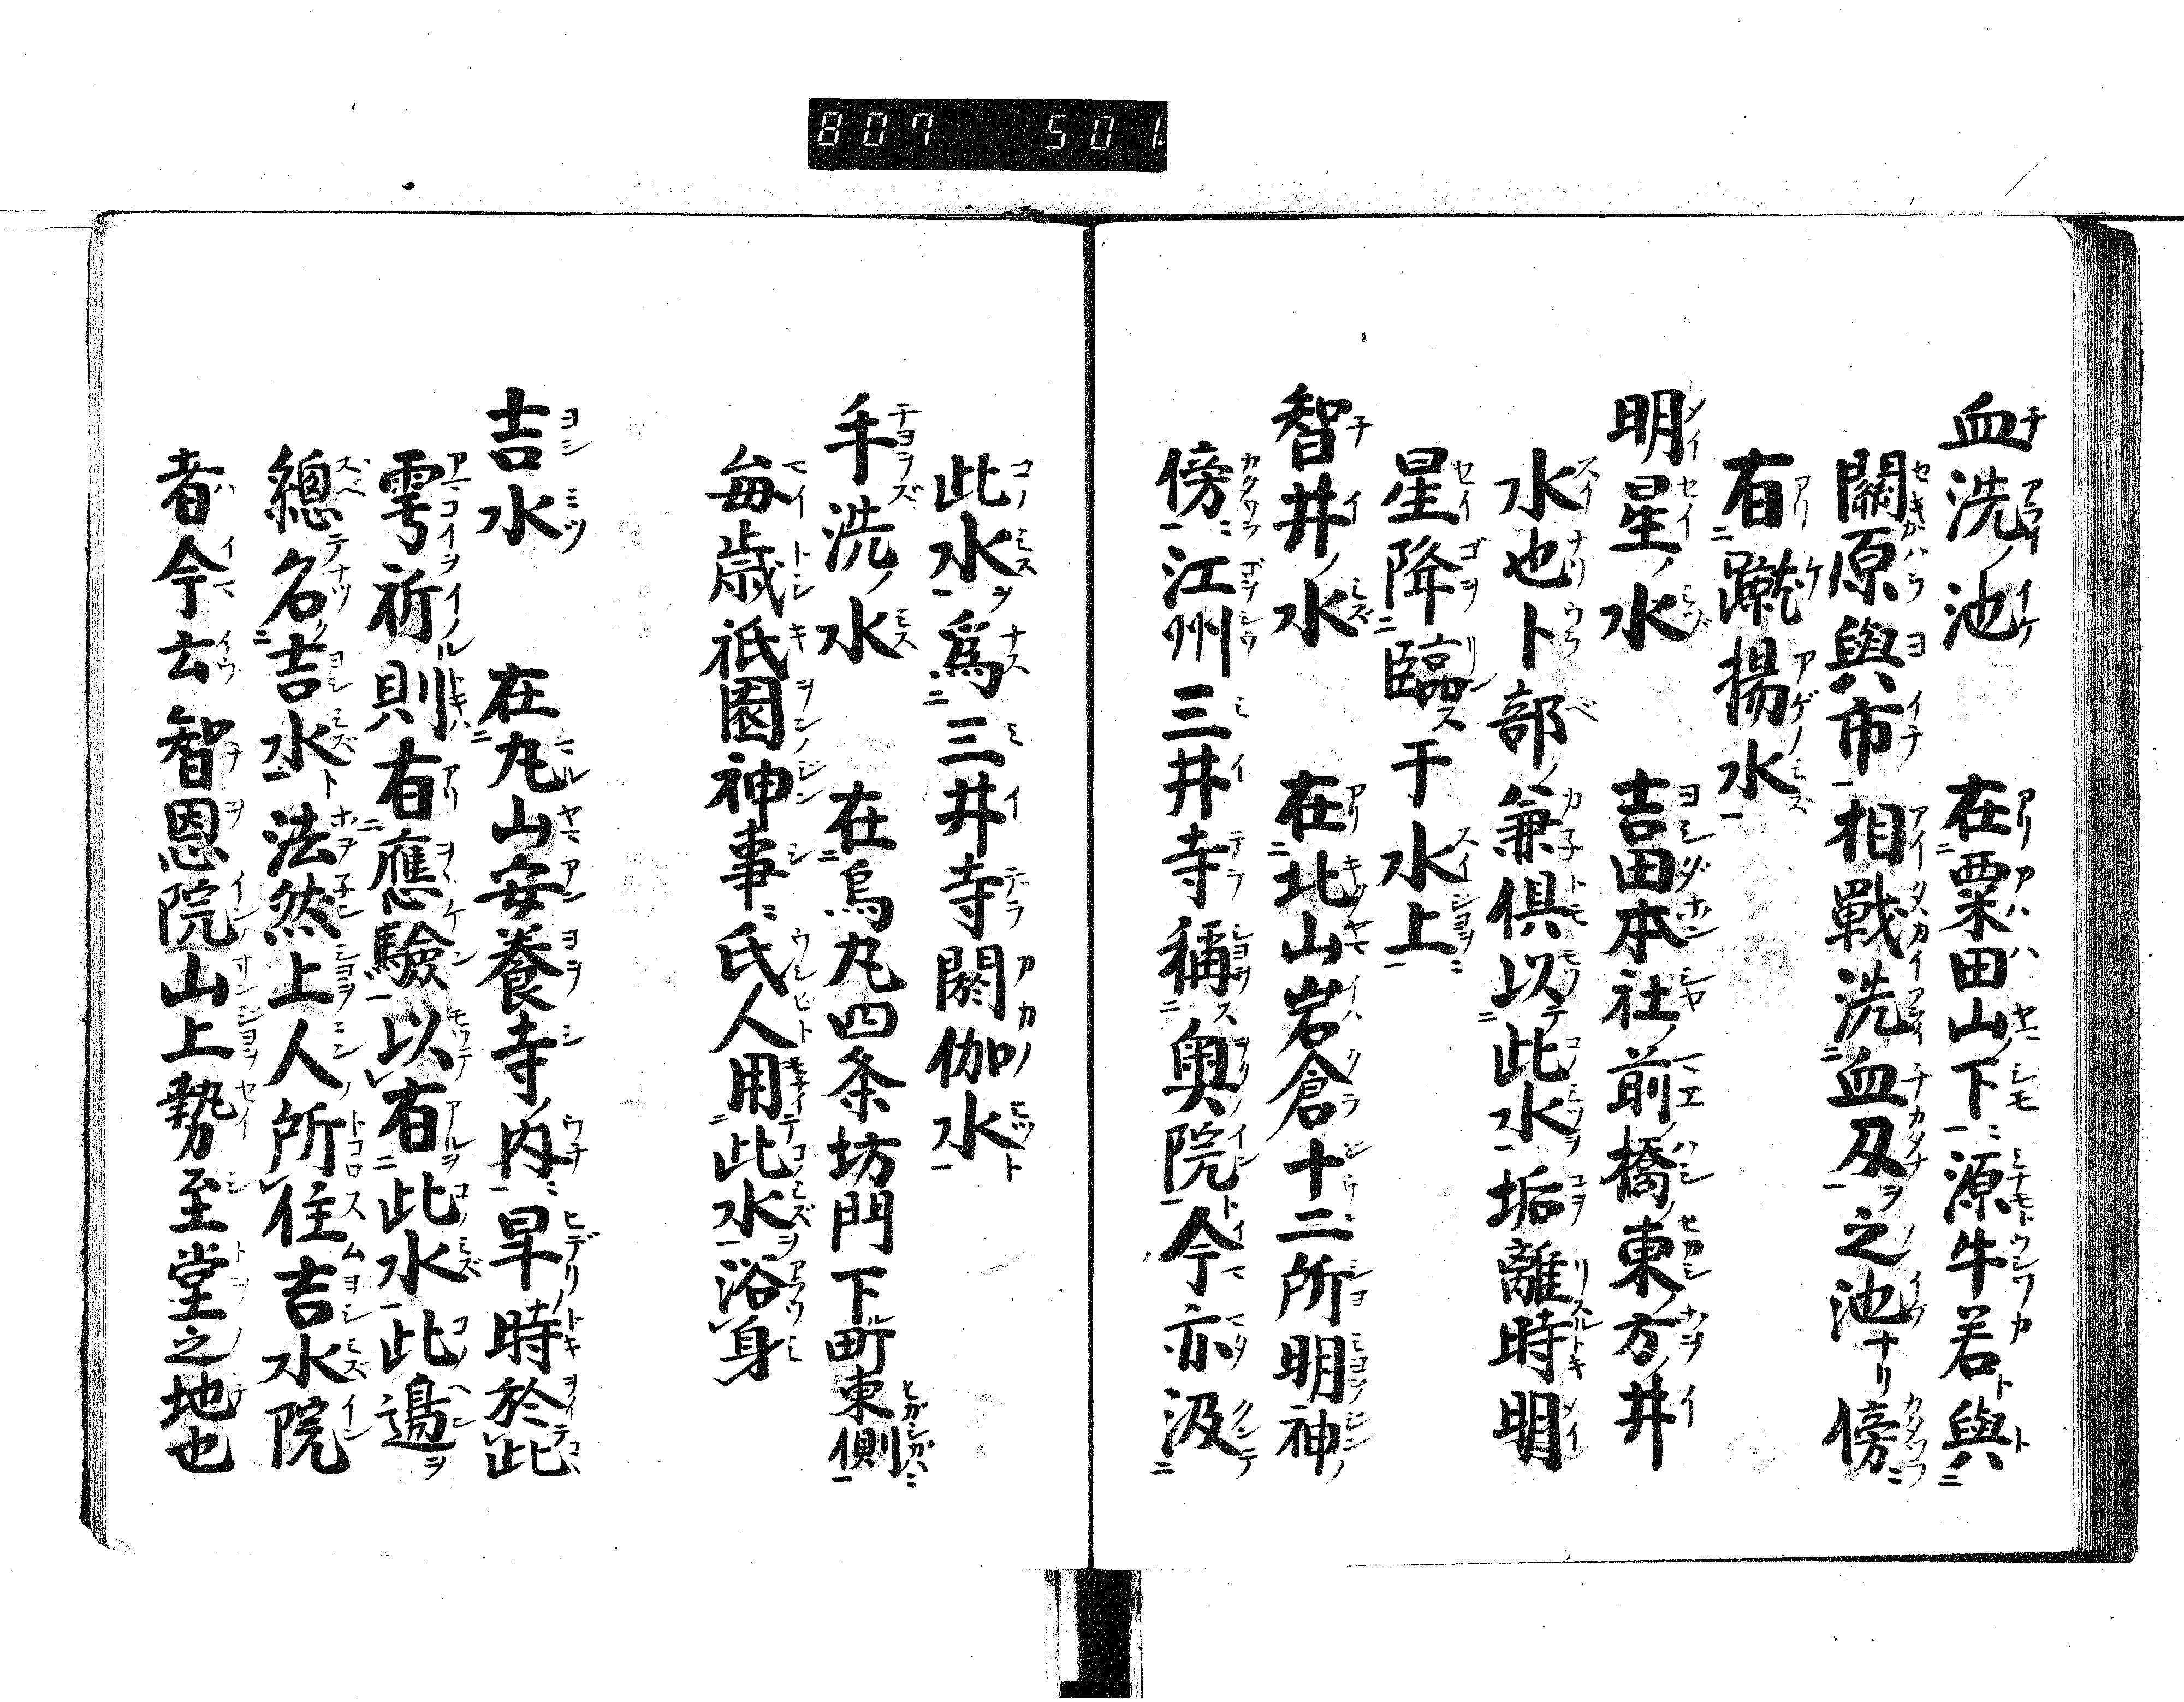 807 501
血洗池 在粟田山下源牛若與
關原與市相戰洗血刄之池ナリ傍
有蹴揚水
明星水 吉田本社前橋東方井
水也卜部兼倶以此水垢離時明
星降臨于水上
智井水 在北山岩倉十二所明神
傍江州三井寺稱奥院今亦汲
此水爲三井寺閼伽水
手洗水 在烏丸四条坊門下町東側
毎歳祇園神事氏人用此水浴身
吉水 在丸山安養寺内旱時於此
雩祈則有應驗以有此水此邊ヲ
總名吉水法然上人所住吉水院
者今云智恩院山上勢至堂之地也